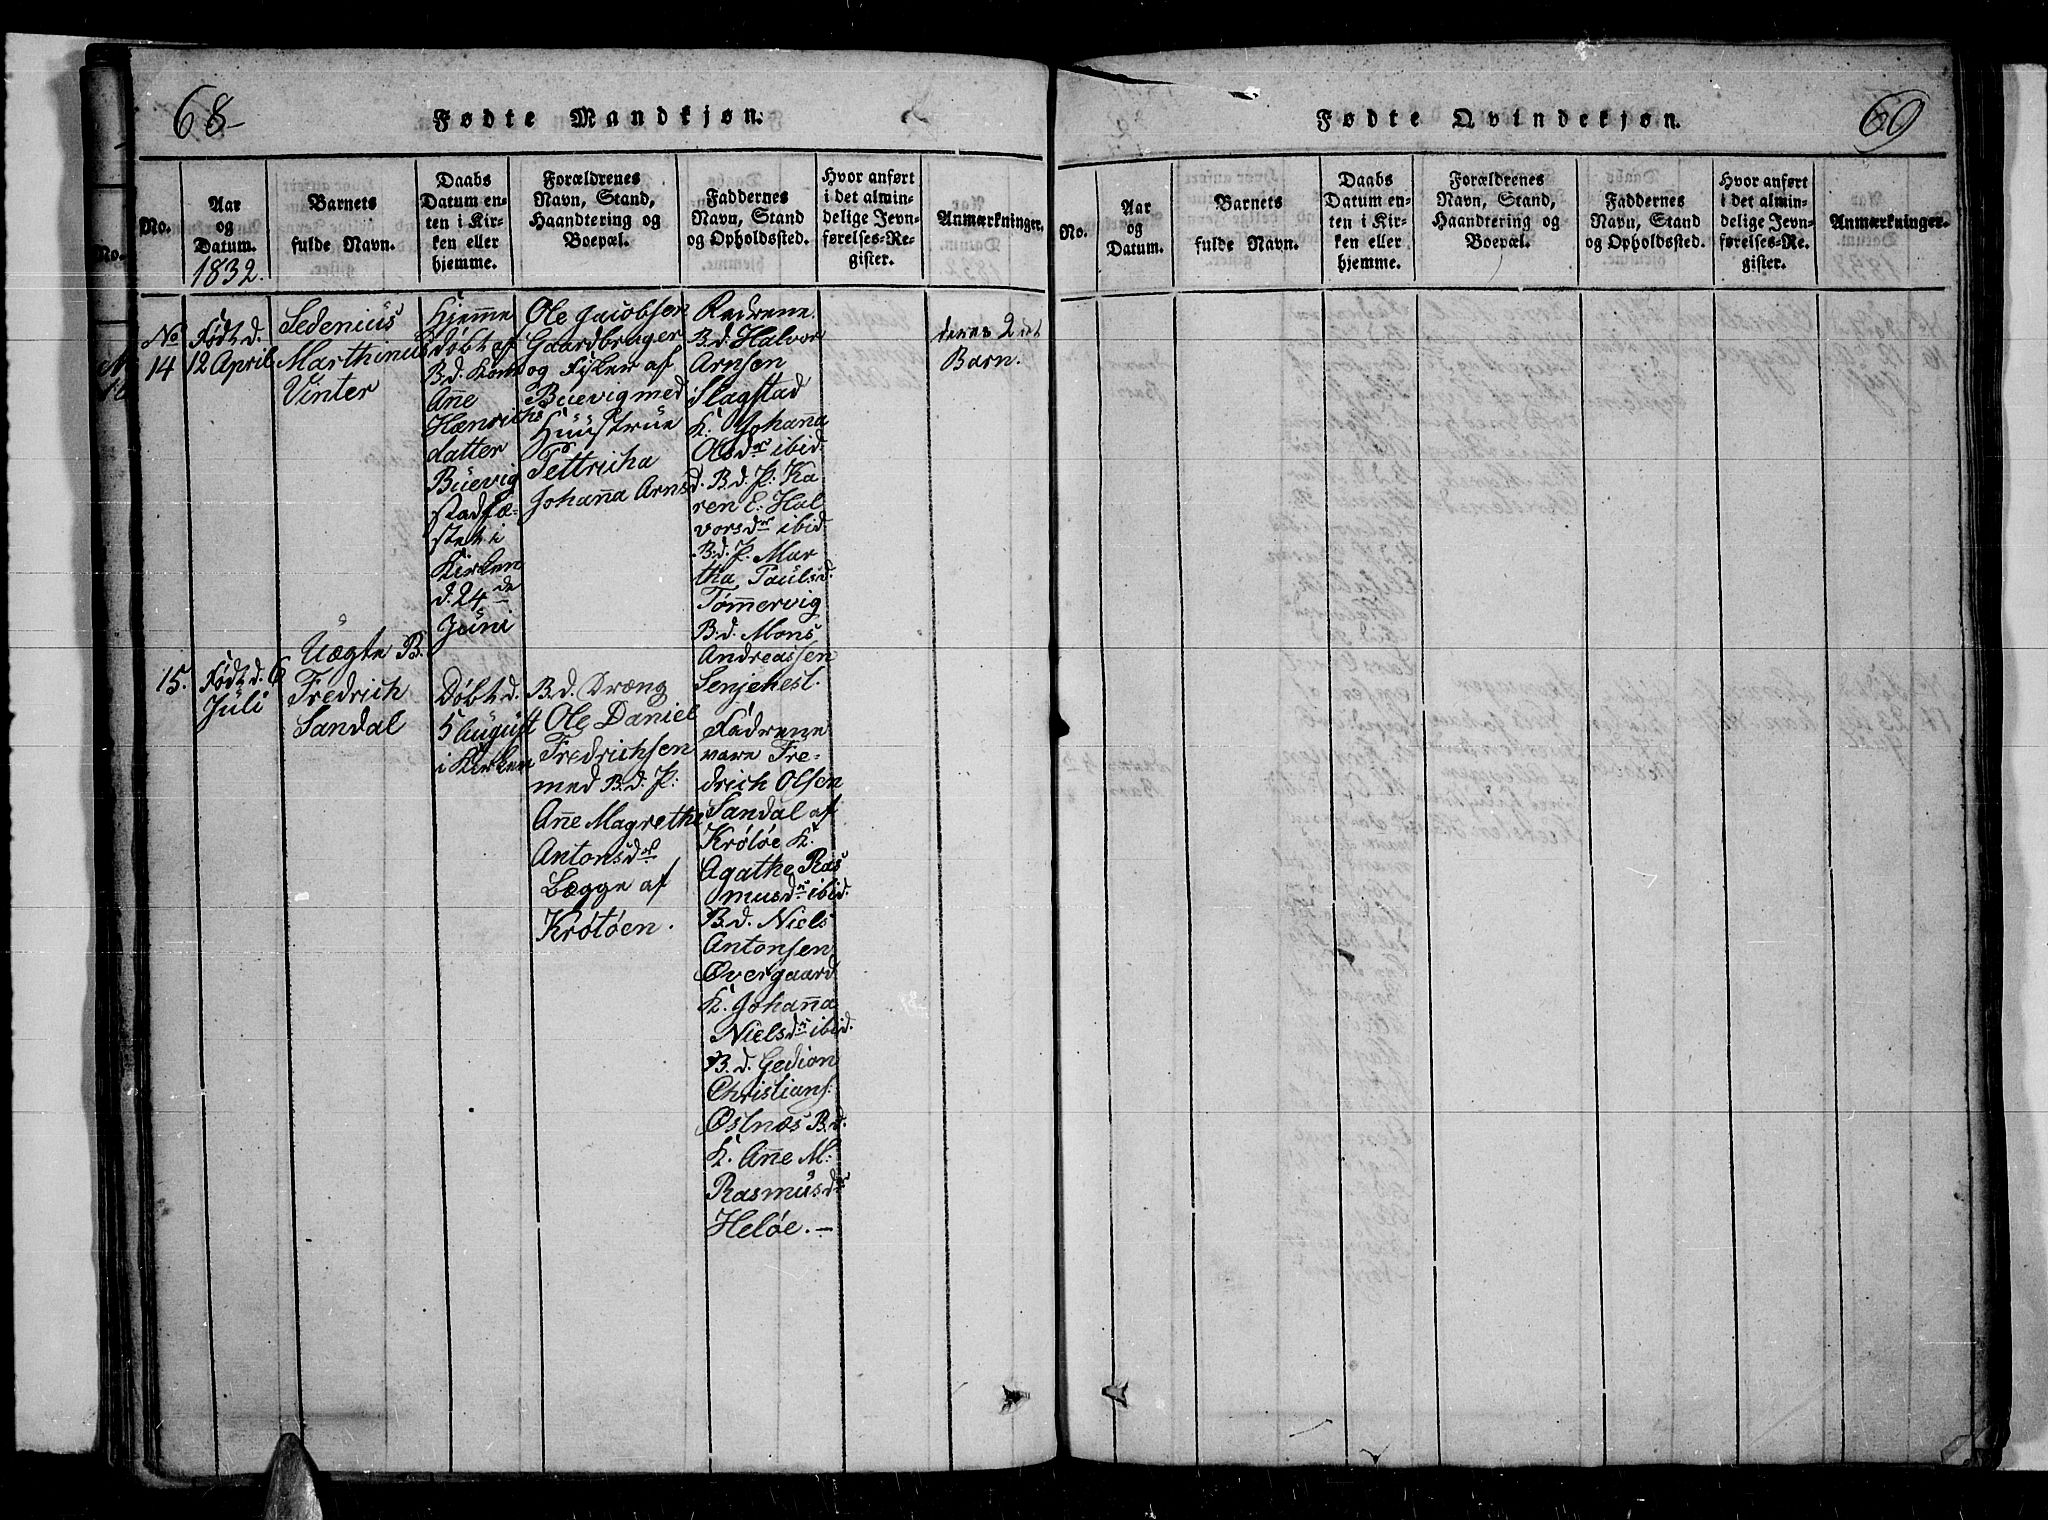 68
Fødte Mandkjøn.
No.
Aar
og
Datum.
1832.
Barnets
fulde Navn.
Daabs
Datum en-
ten i Kir-
ken eller
hjemme.
Forældrenes
Navn, Stand,
Haandtering og
Boepæl.
Faddernes
Navn, Stand
og Opholdssted.
Hvor anført
i det almin-
delige Jevn-
førelses-Re-
gister.
Anmærkninger.
No
14
Født d.
12 April
Sedenius
Marthinus
Vinter
Hjemme
døbt af
B.d. Kone
Añe
Hænrichs
datter
Buevig
stadfæ-
stet i
Kirken
d. 24 de
Juni
Ole Jacobsen
Gaardbruger
og Fisker af
Buevig med
Huustrue
Pettricha
Johaña Arnsd.
Fadrene
B.d. Halvor
Arnsen
Slagstad
K. Johaña
Olsdr ibid.
B.d. P. Ka
ren E. Hal
vorsdr ibid.
B.d. P. Mar
tha Paulsd.
Tømmervig
B.d. Mons
Andreassen
Senjehest.
deres 2det
Barn.
15.
Født d. 6
Juli
Uægte B.
Fredrich
Sandal
Døbt d.
5 August
i Kirken
B.d. Dræng
Ole Daniel
Fredrichsen
med B.d. P:
Añe Magrethe
Antonsdr
Begge af
Krøtøen.
Fadrene
vare Fre-
drich Olsen
Sandal af
Krøtøe K.
Agathe Ras
musdr ibid.
B.d. Niels
Antonsen
Øvergaard
K. Johaña
Nielsdr ibid.
B.d. Gedion
Christians.
Østnæs B.d.
K. Añe M:
Rasmusdr
Heløe. —
69
Fødte Qvindekjøn.
No.
Aar
og
Datum.
Barnets
fulde Navn.
Daabs
Datum en-
ten i Kir-
ken eller
hjemme.
Forældrenes
Navn, Stand,
Haandtering og
Boepæl.
Faddernes
Navn, Stand
og Opholdssted.
Hvor anført
i det almin-
delige Jevn-
førelses-Re-
gister.
Anmærkninger.